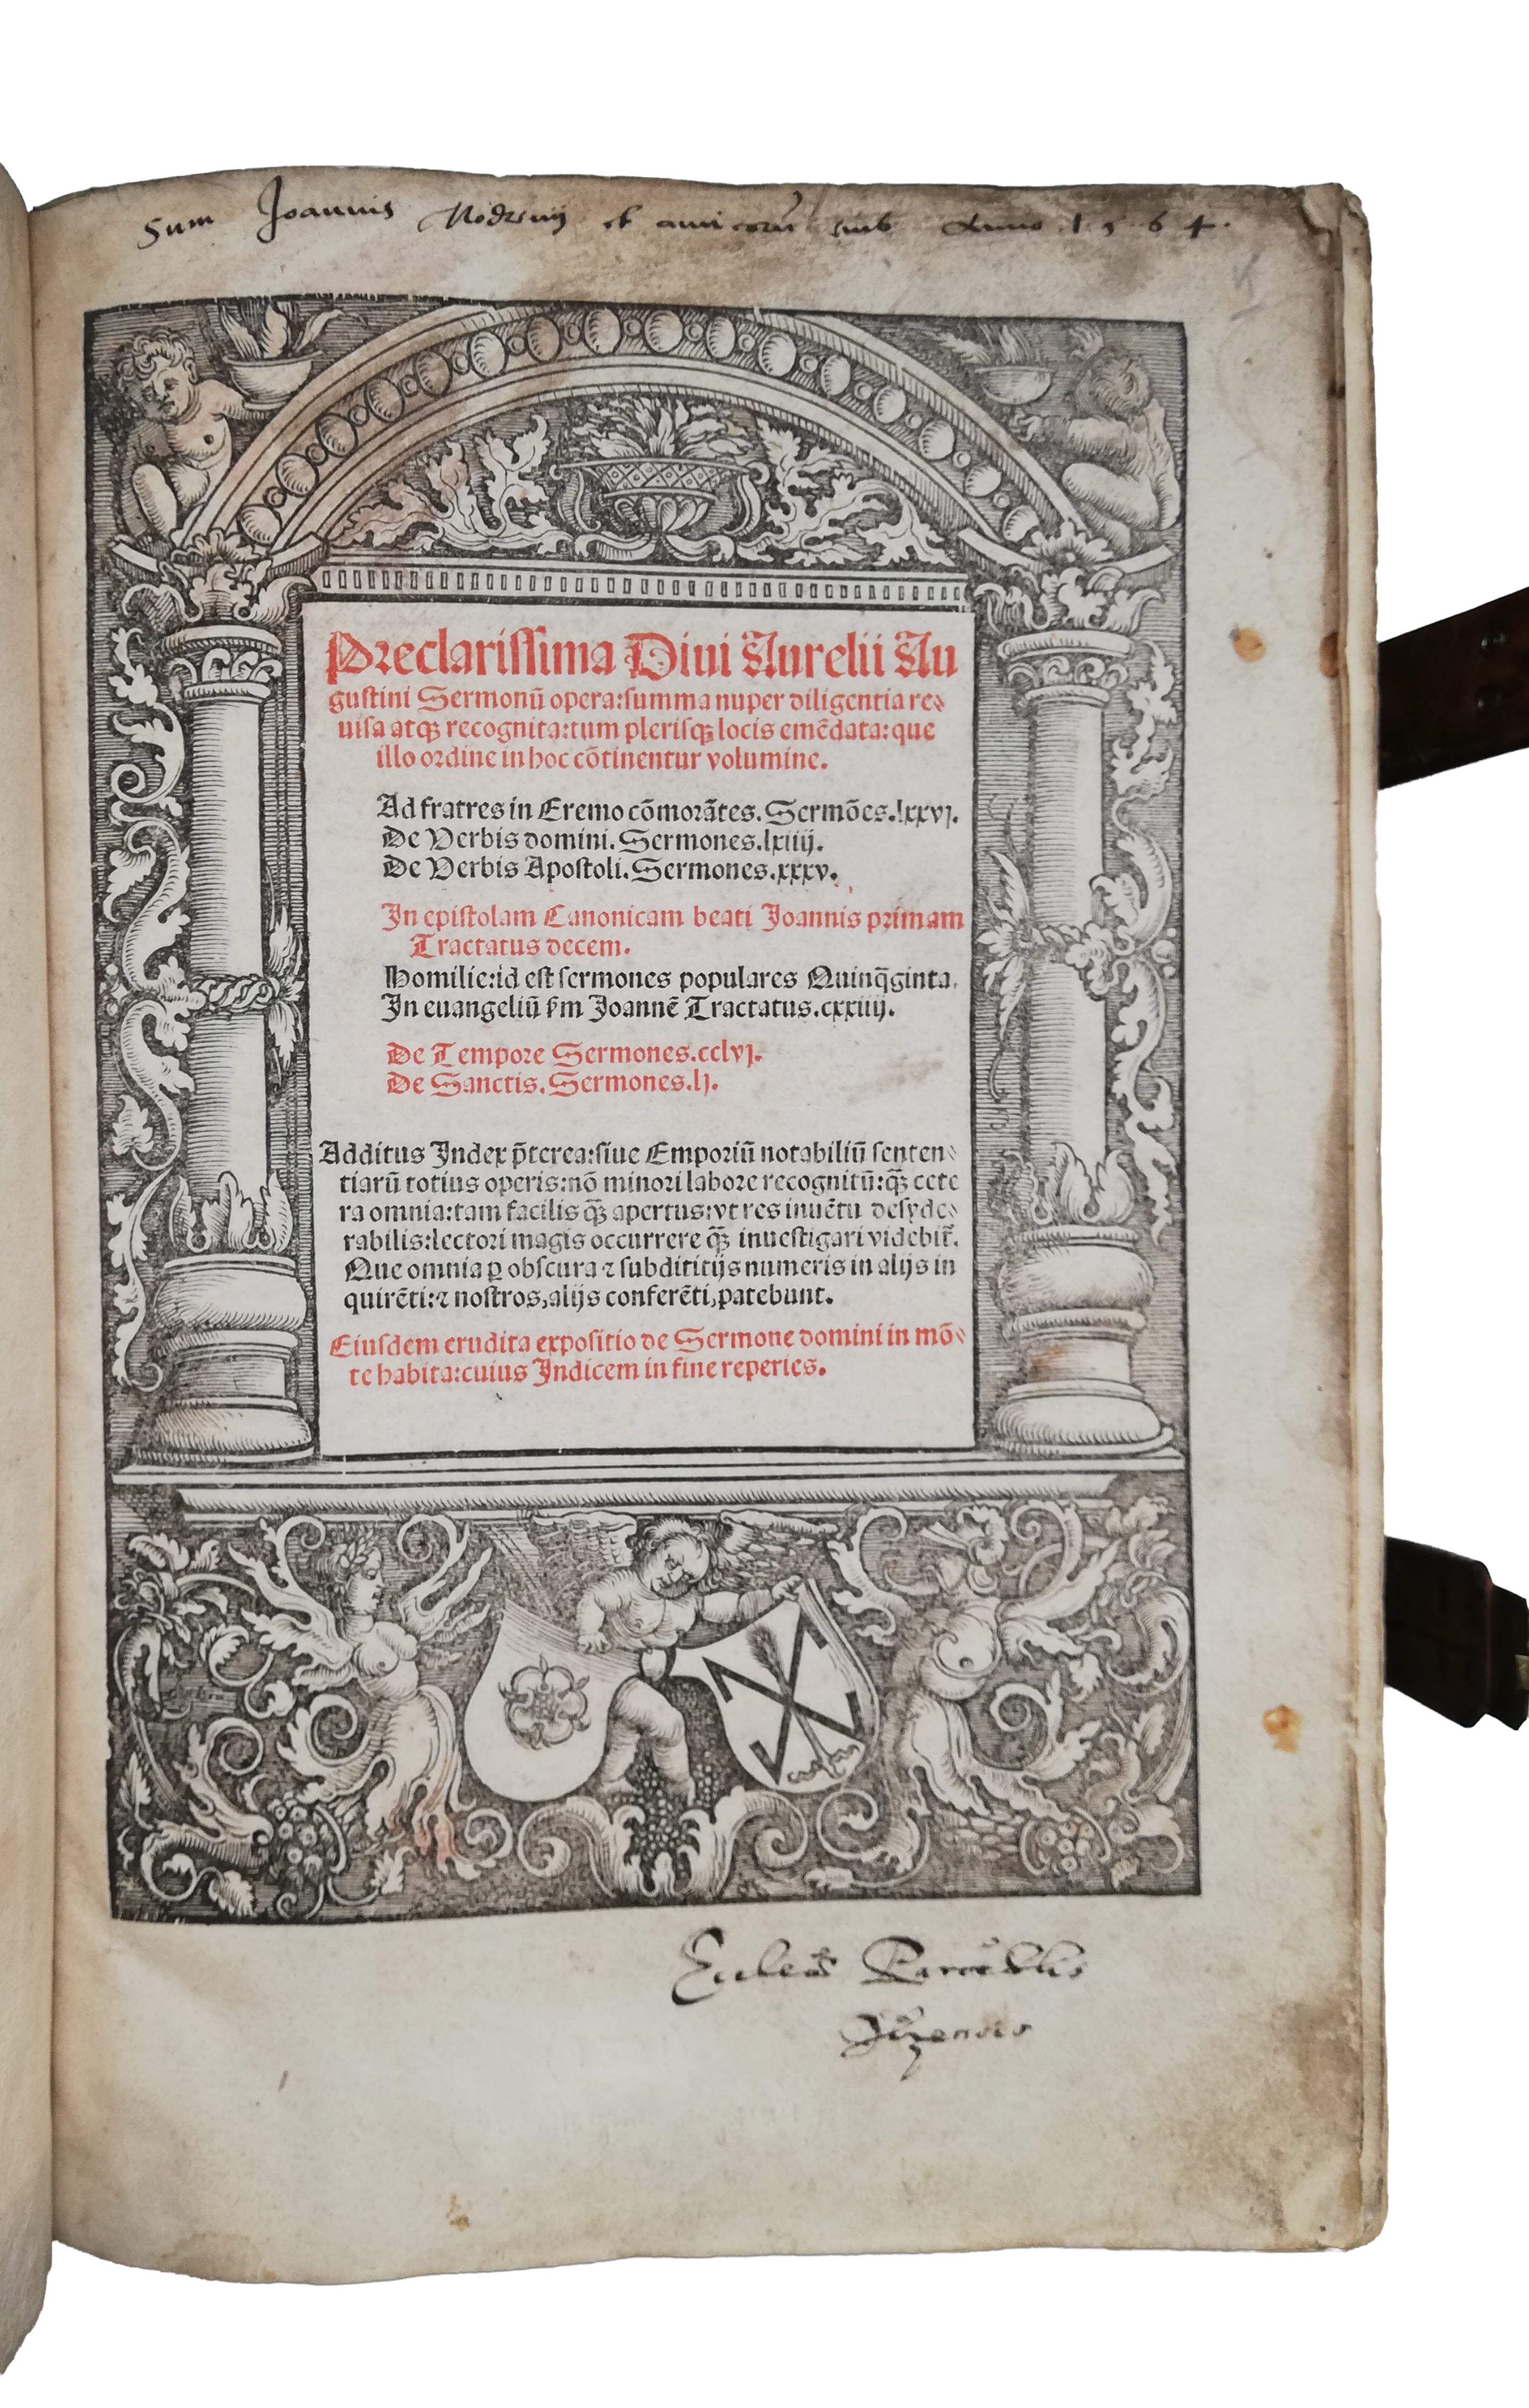 Sum Joannis Modrevij et amicorū Anno 1564.
Preclarissima Diui Aurelii Au
gustini Sermonū opera:summa nuper diligentia re-
uisa atqꝫ recognita:tum plerisqꝫ locis emēdata:que
illo ordine in hoc cōtinentur volumine.
Ad fratres in Eremo cōmorātes. Sermōes.lxxvj.
De Verbis domini. Sermones.lxiiij.
De Verbis Apostoli. Sermones.xxxv.
In epistolam Canonicam beati Joannis primam
Tractatus decem.
Homilie:id est sermones populares Quinq̄ginta.
In euangeliū ẜm Joannē Tractatus.cxxiiij.
De Tempore Sermones.cclvj.
De Sanctis. Sermones.lj.
Additus Index p̄terea:siue Emporiū notabiliū senten-
tiarū totius operis:nō minori labore recognitū:qꝫ̄ cete
ra omnia:tam facilis qꝫ̄ apertus:vt res inuētu desyde-
rabilis:lectori magis occurrere qꝫ̄ inuestigari videbit̄.
Que omnia ꝑ obscura ⁊ subdititijs numeris in alijs in
quirēti:⁊ nostros,alijs conferēti,patebunt.
Eiusdem erudita expositio de Sermone domini in mō-
te habita:cuius Indicem in fine reperies.